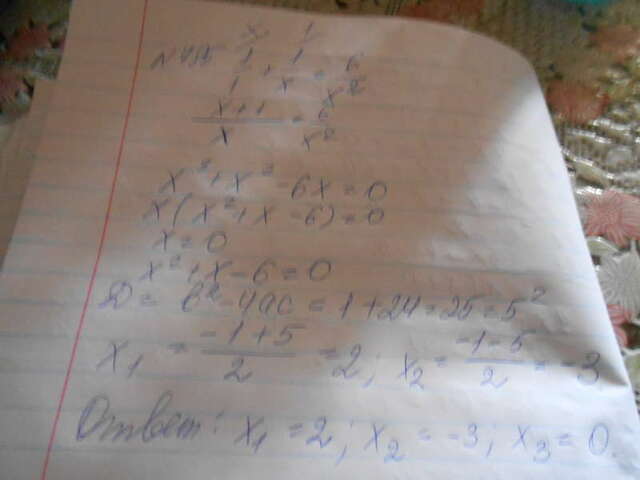 x 1
1/1 + 1/x = 6/x²
(x+1)/x = 6/x²
x²+x²-6x=0
x(x²+x-6)=0
x=0
x²+x-6=0
D= b²-4ac=1+24=25=5²
x₁ = (-1+5)/2 =2; x₂ = (-1-5)/2 = -3
Ответ: x₁=2; x₂=-3; x₃=0.